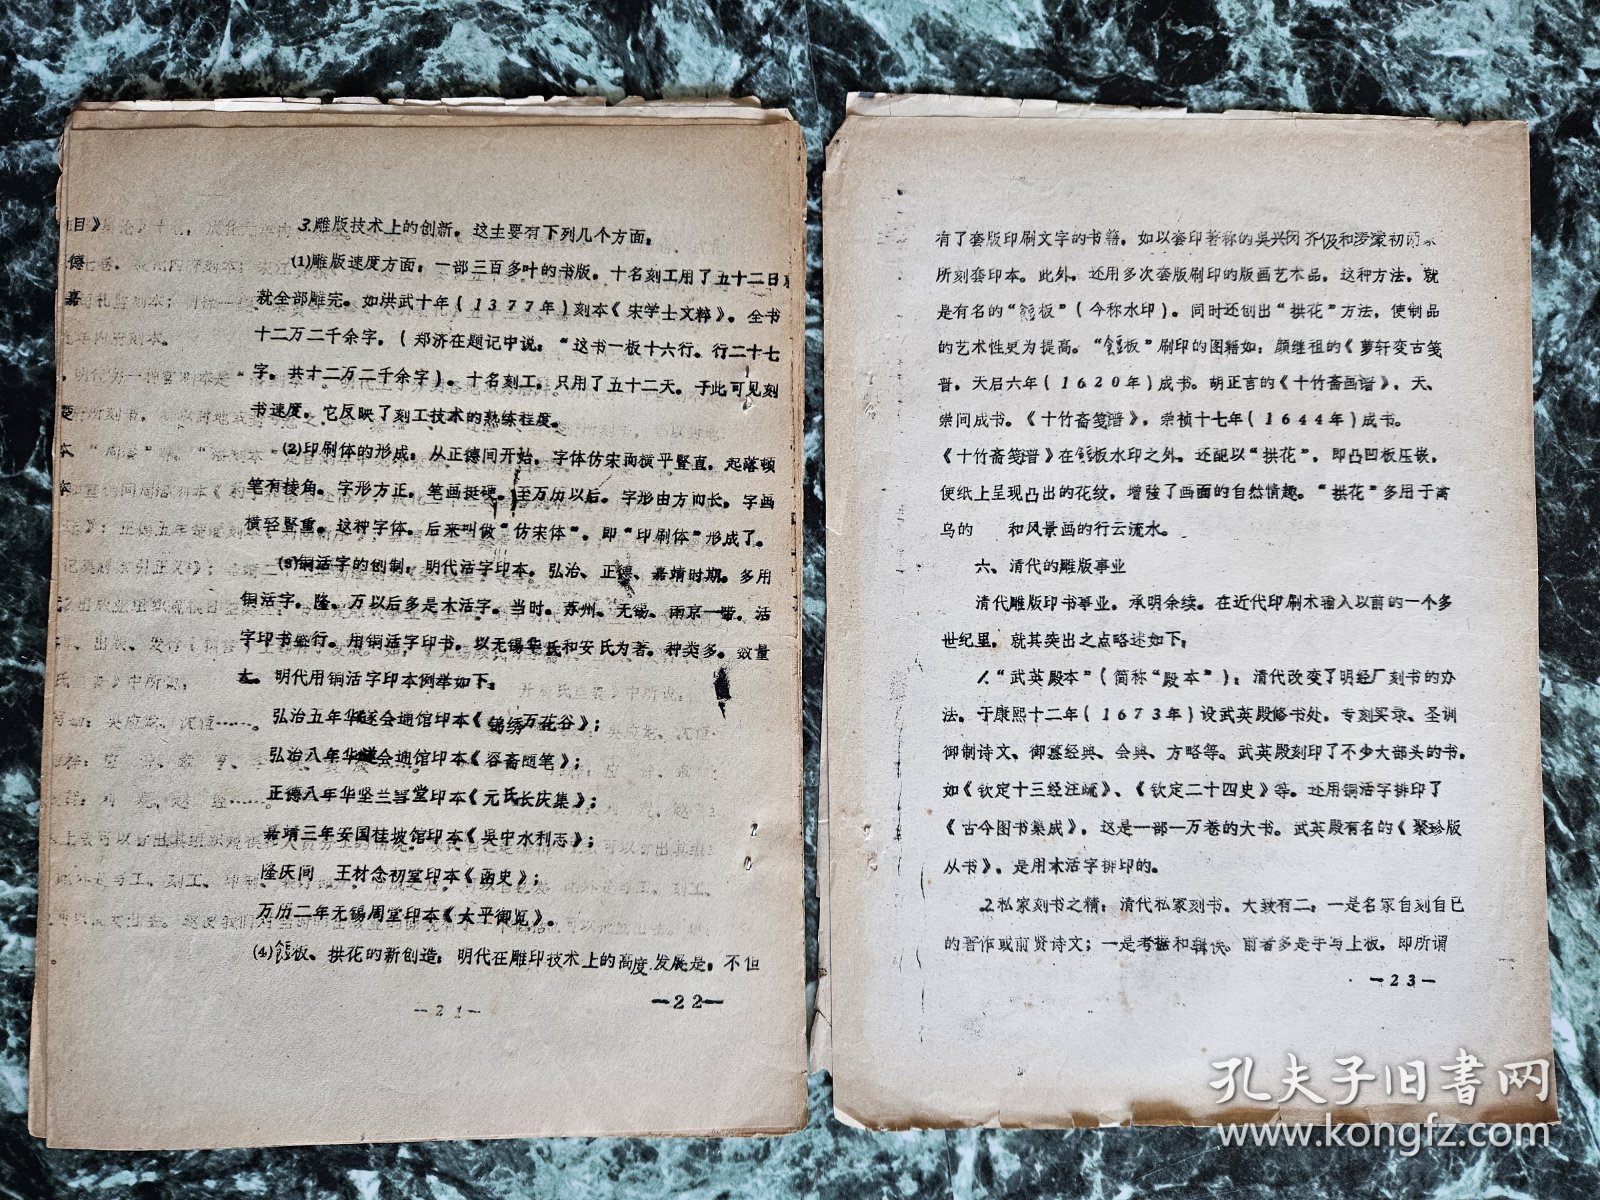 3.雕版技术上的创新。这主要有下列几个方面。
(1)雕版速度方面：一部三百多叶的书版。十名刻工用了五十二日
就全部雕完。如洪武十年(1377年)刻本《宋学士文粹》。全书
十二万二千余字。(郑济在题记中说：“这书一板十六行。行二十七
字。共十二万二千余字)。十名刻工。只用了五十二天。于此可见刻
书速度。它反映了刻工技术的熟练程度。
(2)印刷体的形成：从正德间开始，字体仿宋而横平竖直，起落顿
笔有棱角。字形方正。笔画挺硬。至万历以后。字形由方而长，字画
横轻竖重。这种字体。后来叫做“仿宋体”。即“印刷体”形成了。
(3)铜活字的创制：明代活字印本。弘治、正德、嘉靖时期。多用
铜活字。隆、万以后多是木活字。当时。苏州、无锡、南京一带。活
字印书盛行。用铜活字印书。以无锡华氏和安氏为著。种类多。数量
大。明代用铜活字印本例举如下：
弘治五年华燧会通馆印本《锦绣万花谷》；
弘治八年华燧会通馆印本《容斋随笔》；
正德八年华坚兰雪堂印本《元氏长庆集》；
嘉靖三年安国桂坡馆印本《吴中水利志》；
隆庆间 王材念初堂印本《函史》；
万历二年无锡周堂印本《太平御览》。
(4)饾板、拱花的新创造：明代在雕印技术上的高度发展是：不但
—21—
—22—
有了套版印刷文字的书籍。如以套印著称的吴兴闵齐伋和凌濛初两家
所刻套印本。此外。还用多次套版刷印的版画艺术品。这种方法，就
是有名的“饾板”(今称水印)。同时还创出“拱花”方法，使制品
的艺术性更为提高。“饾板”刷印的图籍如：颜继祖的《萝轩变古笺
谱，天启六年(1620年)成书。胡正言的《十竹斋画谱》，天、
崇间成书。《十竹斋笺谱》，崇祯十七年(1644年)成书。
《十竹斋笺谱》在饾板水印之外。还配以“拱花”，即凸凹板压嵌，
使纸上呈现凸出的花纹，增强了画面的自然情趣。“拱花”多用于禽
鸟的 和风景画的行云流水。
六、清代的雕版事业
清代雕版印书事业。承明余续。在近代印刷术输入以前的一个多
世纪里，就其突出之点略述如下：
1.“武英殿本”(简称“殿本”)：清代改变了明经厂刻书的办
法。于康熙十二年(1673年)设武英殿修书处，专刻实录、圣训
御制诗文、御纂经典、会典、方略等。武英殿刻印了不少大部头的书。
如《钦定十三经注疏》、《钦定二十四史》等。还用铜活字排印了
《古今图书集成》，这是一部一万卷的大书。武英殿有名的《聚珍版
丛书》，是用木活字排印的。
2.私家刻书之精：清代私家刻书。大致有二：一是名家自刻自已
的著作或前贤诗文；一是考据和辑佚。前者多是手写上板，即所谓
—23—
孔夫子旧书网
www.kongfz.com